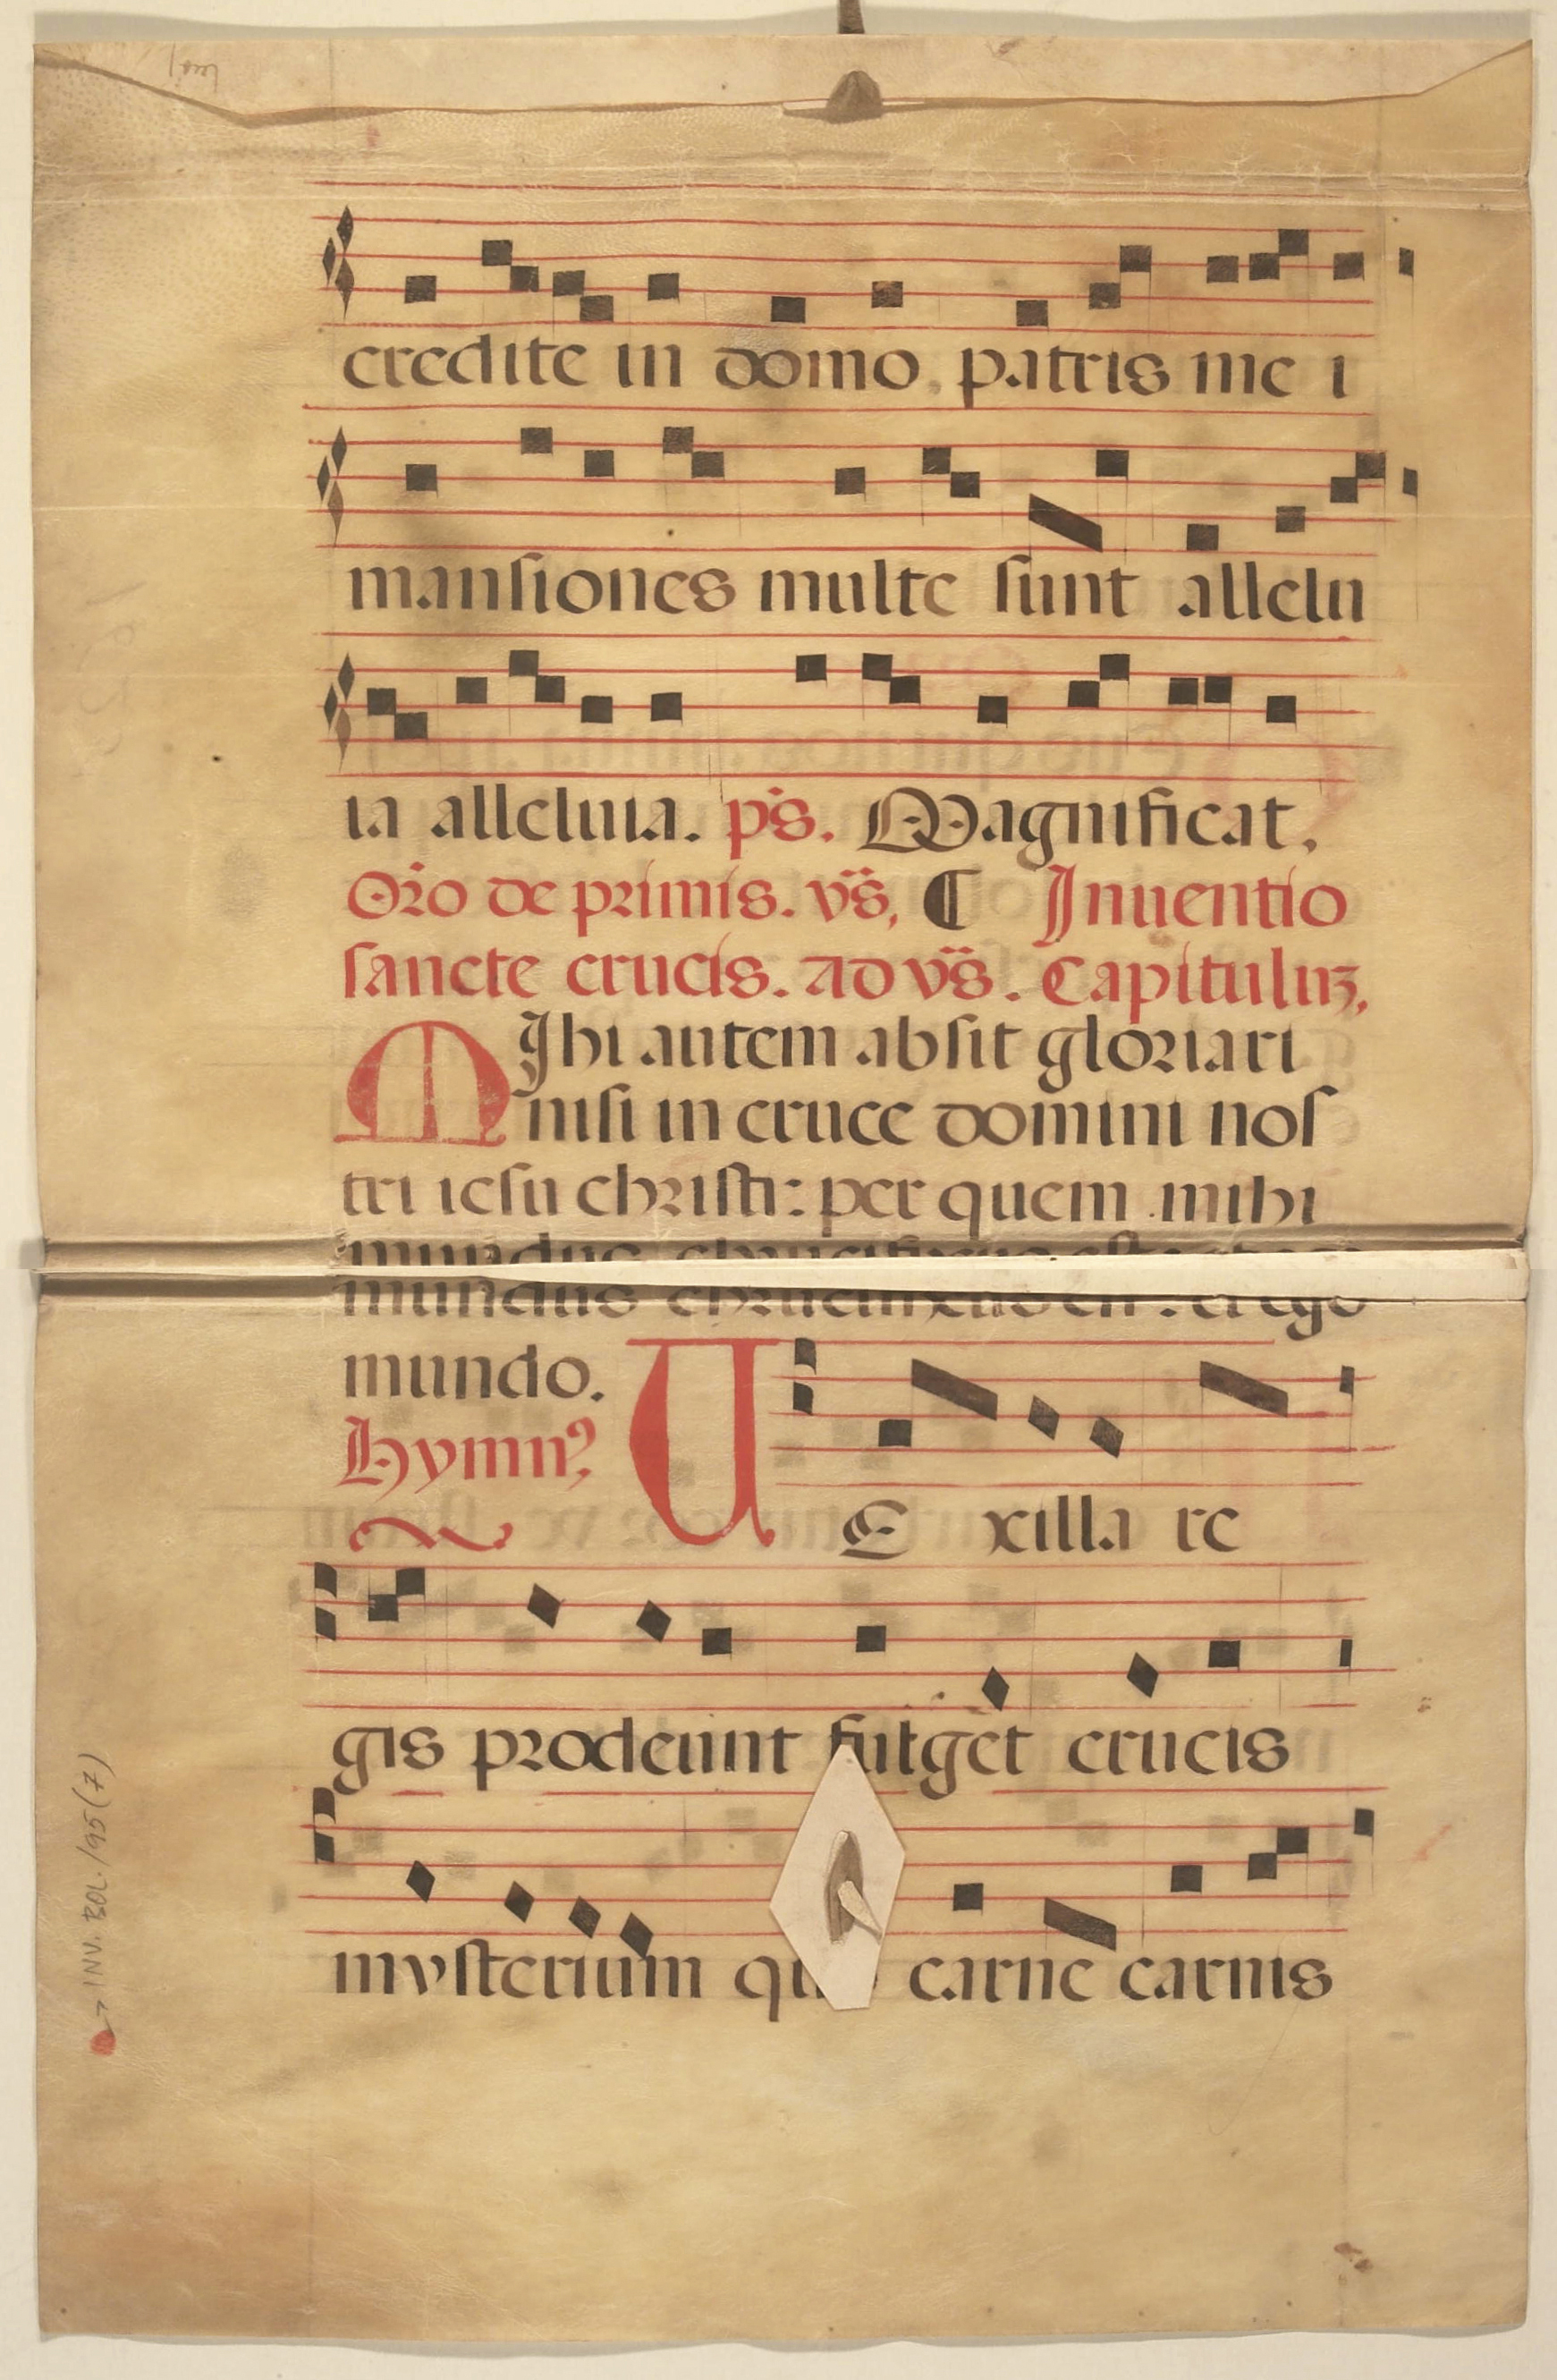 credite in domo patris me i
mansiones multe sunt allelu
ia alleluia. ps. Magnificat.
Oro de primis. vs. Inuentio
sancte crucis. Ad vs. Capitulu
MIhi autem absit gloriari
nisi in cruce domini nos
tri iesu christi: per quem mihi
mundus chrucifixus est: et ego
mundo.
Hymn9
VExilla re
gis prodeunt fulget crucis
mysterium carne carnis
INV. BOL./95(7)